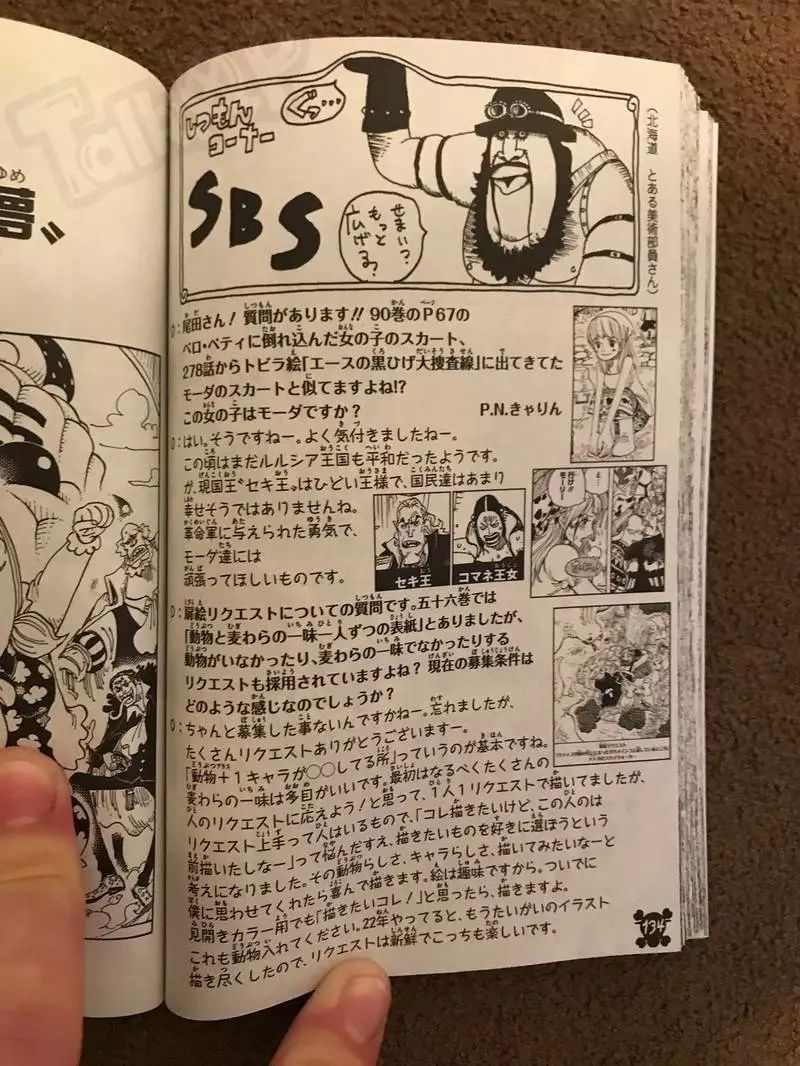 ゆめ
夢〟
Talk
しつもん
コーナー
SBS
ぐっ…
せまいっ?
もっと
広げる?
(北海道 とある美術部員さん)
D:尾田さん!質問があります!!90巻のP67の
ベロ・ベティに倒れ込んだ女の子のスカート、
278話からトビラ絵「エースの黒ひげ大捜査線」に出てきてた
モーダのスカートと似てますよね!?
この女の子はモーダですか? P.N.きゃりん
O:はい。そうですねー。よく気付きましたねー。
この頃はまだルルシア王国も平和だったようです。
が、現国王〝セキ王〟はひどい王様で、国民達はあまり
幸せそうではありませんね。
革命軍に与えられた勇気で、
モーダ達には
頑張ってほしいものです。
セキ王
コマネ王女
え…
行け!!
モーリー
D:扉絵リクエストについての質問です。五十六巻では
「動物と麦わらの一味一人ずつの表紙」とありましたが、
動物がいなかったり、麦わらの一味でなかったりする
リクエストも採用されていますよね?現在の募集条件は
どのような感じなのでしょうか?
O:ちゃんと募集した事ないんですかねー。忘れましたが、
たくさんリクエストありがとうございますー。
「動物+1キャラが◯◯してる所」っていうのが基本ですね。
麦わらの一味は多目がいいです。最初はなるべくたくさんの
人のリクエストに応えよう!と思って、1人1リクエストで描いてましたが、
リクエスト上手って人はいるもので、「コレ描きたいけど、この人のは
前描いたしなー」って悩んだすえ、描きたいものを好きに選ぼうという
考えになりました。その動物らしさ、キャラらしさ、描いてみたいなーと
僕に思わせてくれたら喜んで描きます。絵は趣味ですから。ついでに
見開きカラー用でも「描きたいコレ!」と思ったら、描きますよ。
これも動物入れてください。22年やってると、もうたいがいのイラスト
描き尽くしたので、リクエストは新鮮でこっちも楽しいです。
134